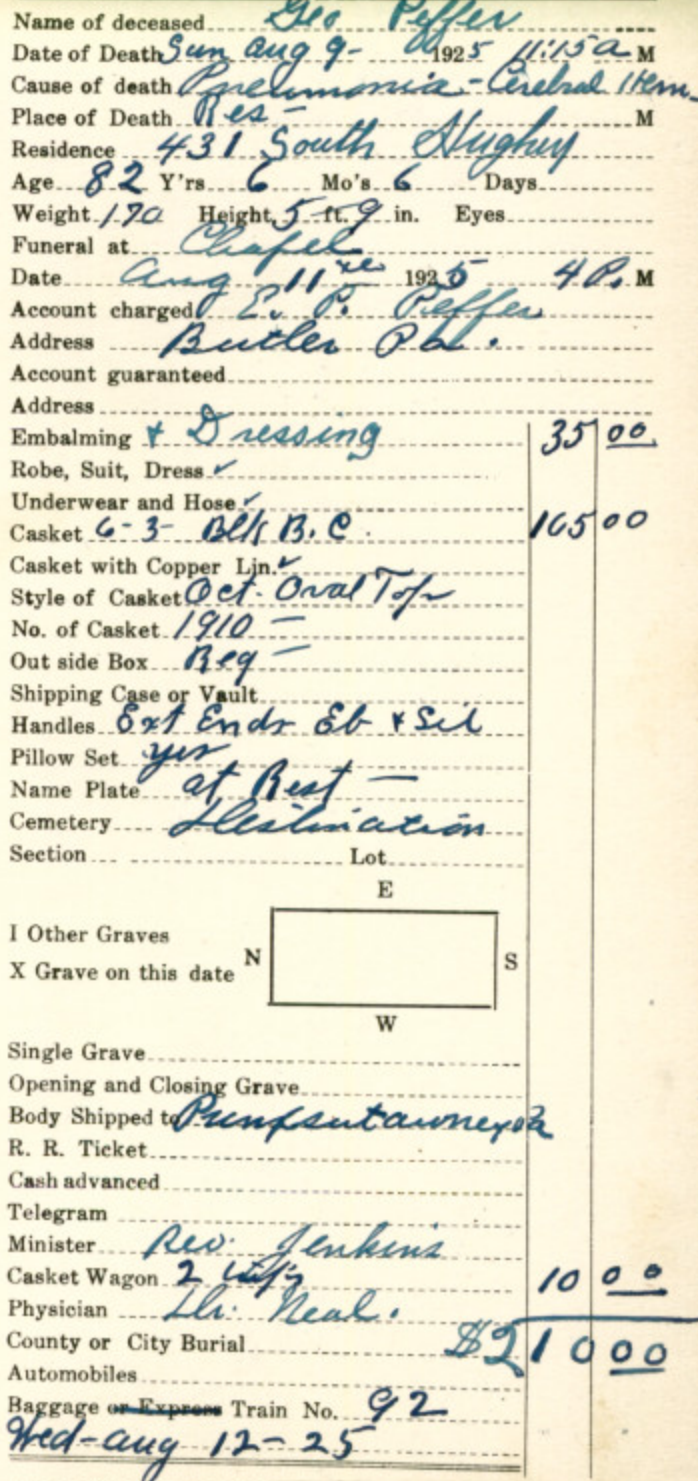 Name of deceased Geo Peffer
Date of Death Sun Aug 9- 1925 11:15 a M
Cause of death Pneumonia - Cerebral Hem.
Place of Death Res - M
Residence 431 South Hughey
Age 82 Y'rs 6 Mo's 6 Days
Weight 170 Height 5 ft. 9 in. Eyes
Funeral at Chapel
Date Aug 11 1925 4 P. M
Account charged E. P. Peffer
Address Butler Pa.
Account guaranteed
Address
Embalming & Dressing 35 00
Robe, Suit, Dress ✓
Underwear and Hose ✓
Casket 6-3- Blk B.C. 165 00
Casket with Copper Lin. ✓
Style of Casket Oct. Oval Top
No. of Casket 1910 -
Out side Box Reg -
Shipping Case or Vault
Handles Ext Ends Eb & Sil
Pillow Set yes
Name Plate at Rest -
Cemetery Destination
Section Lot
E
I Other Graves
N S
X Grave on this date
W
Single Grave
Opening and Closing Grave
Body Shipped to Punxsutawney Pa
R. R. Ticket
Cash advanced
Telegram
Minister Rev. Jenkins
Casket Wagon 2 10 00
Physician Dr. Neal.
County or City Burial $210 00
Automobiles
Baggage or Express Train No. 92
Wed- Aug 12-25